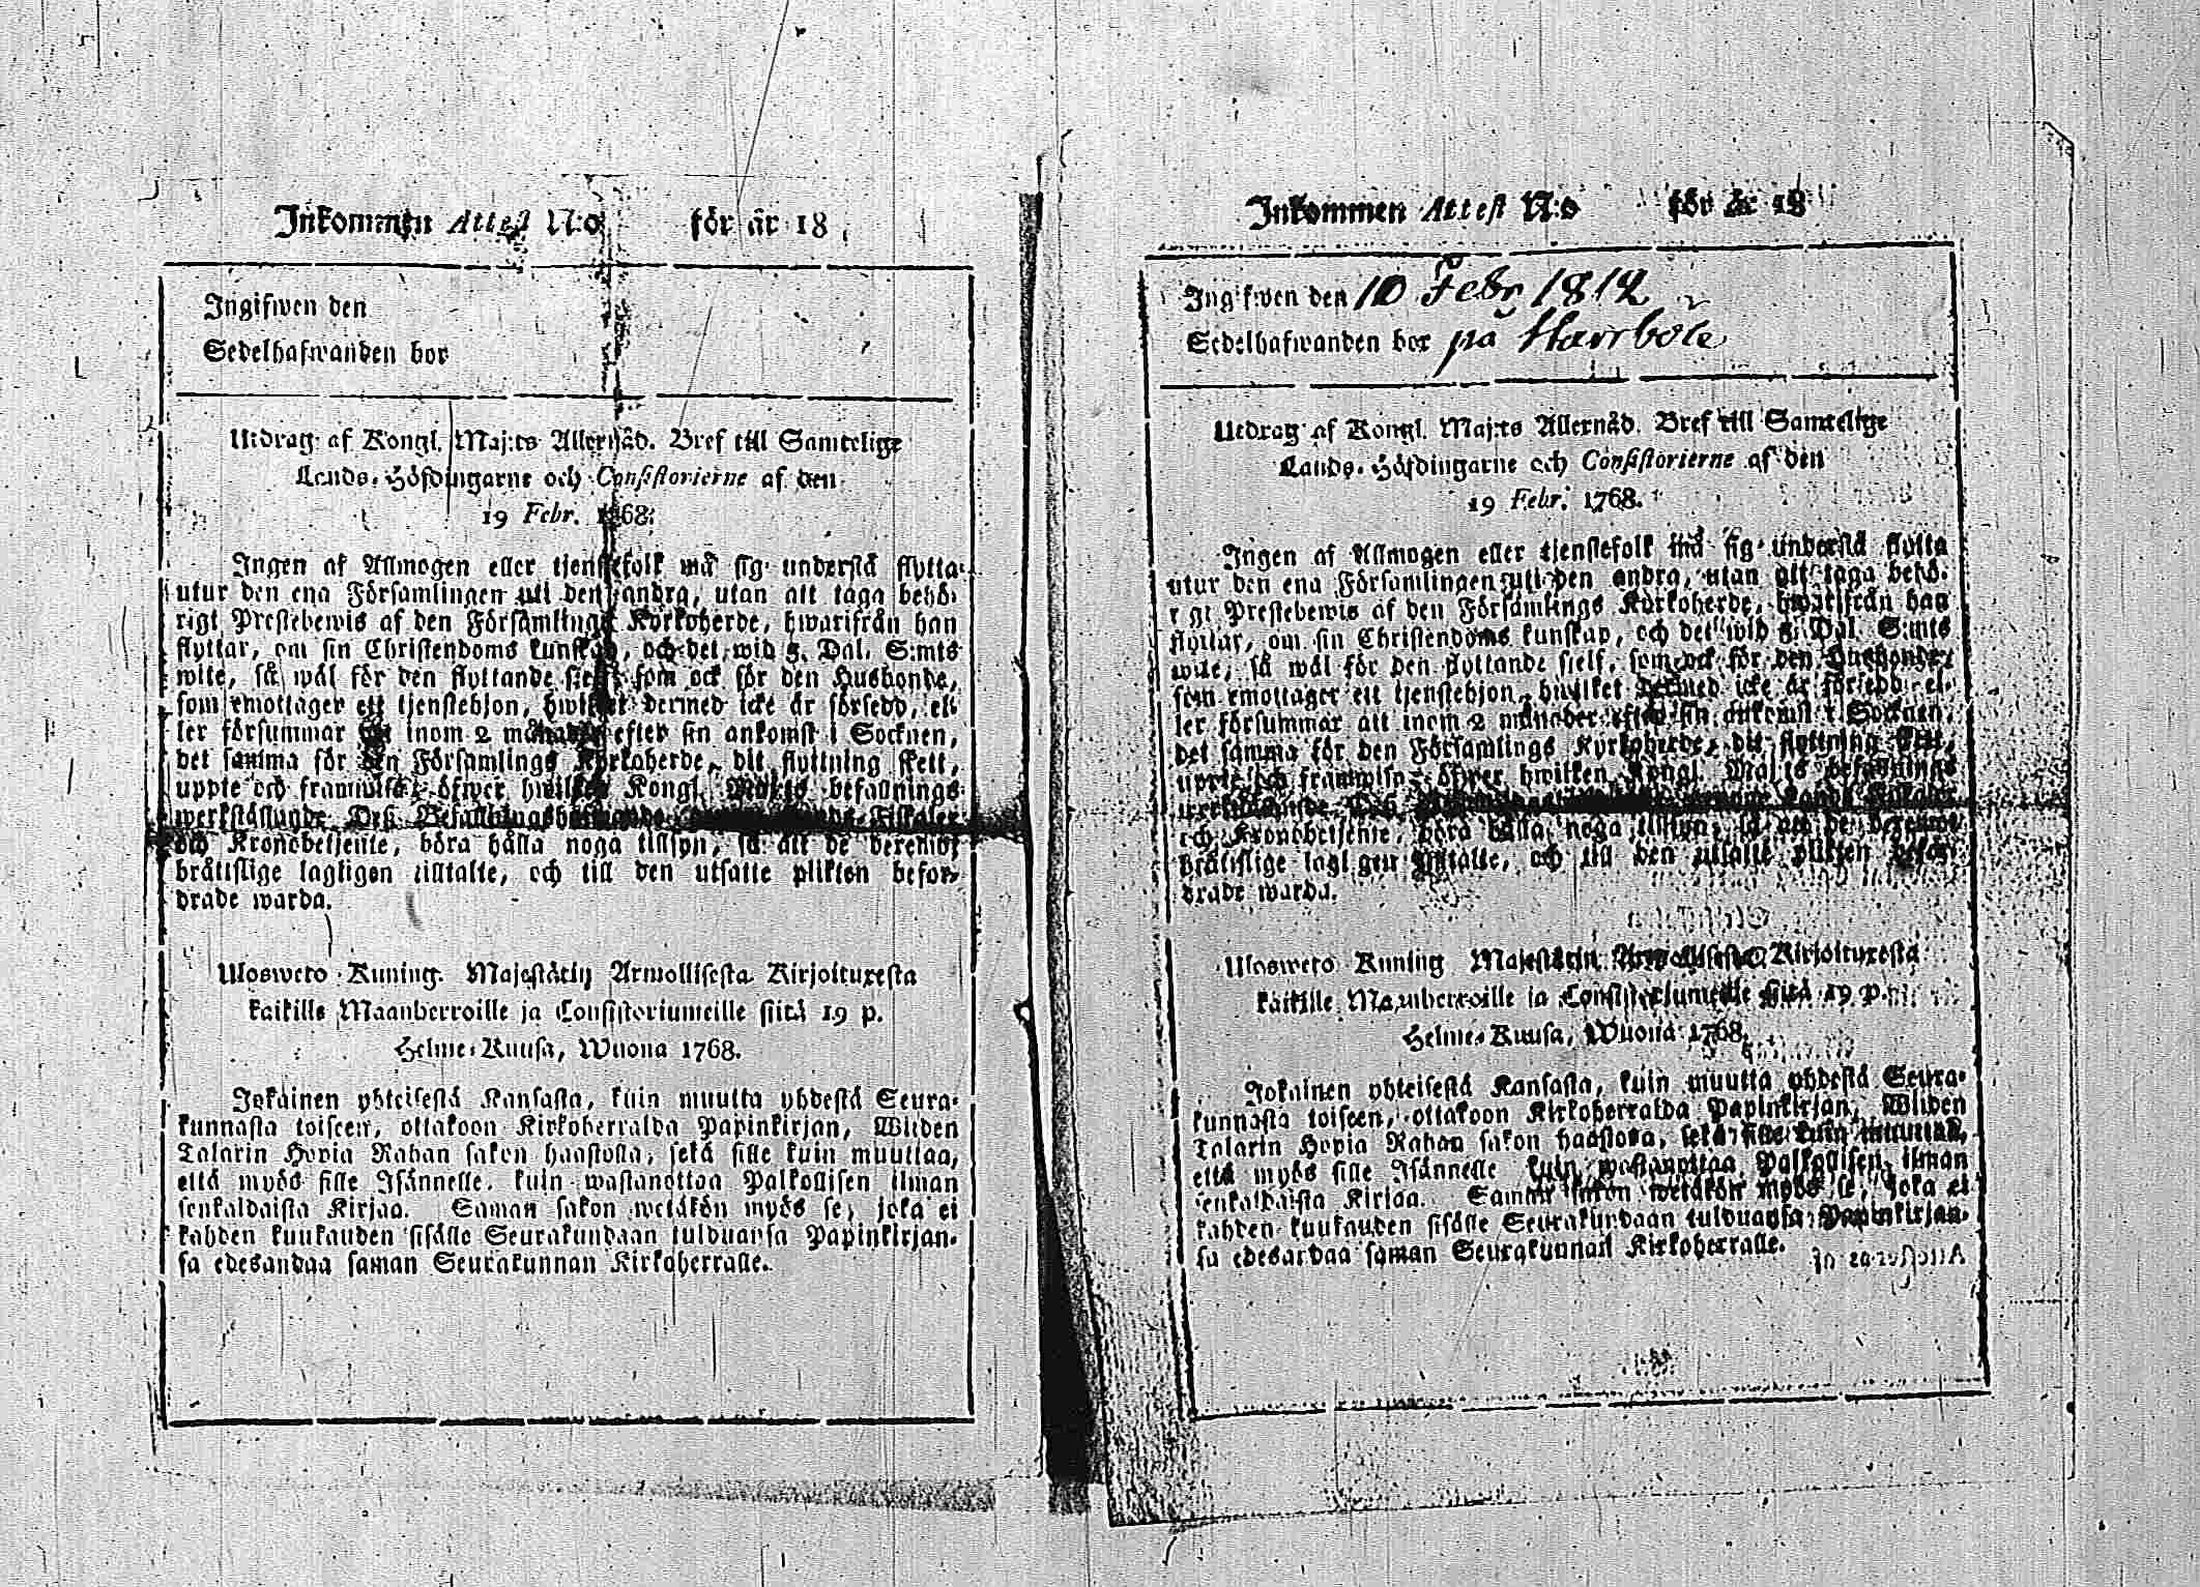 Inkommen Attest N:o för år 18
Ingifwen den
Sedelhafwanden bor
Utdrag af Kongl. Maj:ts Allernåd. Bref till Samtelige
Lands-Höfdingarne och Consistorierne af den
19 Febr. 1768.
Ingen af Allmogen eller tjenstefolk må sig understå flytta
utur den ena Församlingen uti den andra, utan att taga behö-
rigt Prestebewis af den Församlings Kyrkoherde, hwarifrån han
flyttar, om sin Christendoms kunskap, och det wid 5. Dal. S:mts
wite, så wäl för den flyttande sielf som ock för den Husbonde,
som emottager ett tjenstehjon, hwilket dermed icke är försedd, el-
ler försummar att inom 2 månader efter sin ankomst i Socknen,
det samma för den Församlings Kyrkoherde, dit flyttning skett,
uppte och framwisa; öfwer hwilken Kongl. Maj:ts befallnings
werkställande Deß Befallningshafwande Fiskaler
och Kronobetjente, böra hålla noga tillsyn, så att de deremot
bråttslige lagligen tilltalte, och till den utsatte plikten befor-
drade warda.
Ulosweto Kuning. Majestätin Armollisesta Kirjoituxesta
kaikille Maanherroille ja Consistoriumeille siitä 19 p.
Helme-Kuusa, Wuona 1768.
Jokainen yhteisestä Kansasta, kuin muutta yhdestä Seura-
kunnasta toiseen, ottakoon Kirkoherralda Papinkirjan, Wiiden
Talarin Hopia Rahan sakon haastolla, sekä sille kuin muuttaa,
että myös sille Isännelle, kuin wastanottaa Palkollisen ilman
senkaldaista Kirjaa. Saman sakon wetäkön myös se, joka ei
kahden kuukauden sisälle Seurakundaan tulduansa Papinkirjan-
sa edesandaa saman Seurakunnan Kirkoherralle.
Inkommen Attest N:o för år 18
Ingifwen den 10 Febr 1812
Sedelhafwanden bor på Harrböle
Utdrag af Kongl. Maj:ts Allernåd. Bref till Samtelige
Lands-Höfdingarne och Consistorierne af den
19 Febr. 1768.
Ingen af Allmogen eller tjenstefolk må sig understå flytta
utur den ena Församlingen uti den andra, utan att taga behö-
rigt Prestebewis af den Församlings Kyrkoherde, hwarifrån han
flyttar, om sin Christendoms kunskap, och det wid 5. Dal. S:mts
wite, så wäl för den flyttande sielf, som ock för den Husbonde,
som emottager ett tjenstehjon, hwilket dermed icke är försedd, el-
ler försummar att inom 2 månader efter sin ankomst i Socknen,
det samma för den Församlings Kyrkoherde, dit flyttning skett,
uppte och framwisa; öfwer hwilken Kongl. Maj:ts befallnings
werkställande Deß Lands Fiskaler
och Kronobetjente, böra hålla noga tillsyn, så att de deremot
bråttslige lagligen tilltalte, och till den utsatte plikten befor-
drade warda.
Ulosweto Kuning Majestätin Armollisesta Kirjoituxesta
kaikille Maanherroille ja Consistoriumeille siitä 19 p.
Helme-Kuusa, Wuona 1768.
Jokainen yhteisestä Kansasta, kuin muutta yhdestä Seura-
kunnasta toiseen, ottakoon Kirkoherralda Papinkirjan, Wiiden
Talarin Hopia Rahan sakon haastolla, sekä sille kuin muuttaa,
että myös sille Isännelle kuin wastanottaa Palkollisen ilman
senkaldaista Kirjaa. Saman sakon wetäkön myös se, joka ei
kahden kuukauden sisälle Seurakundaan tulduansa Papinkirjan-
sa edesandaa saman Seurakunnan Kirkoherralle.